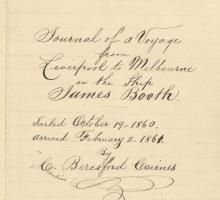 Journal of a Voyage
from
Liverpool to Melbourne
in the Ship
James Booth.
Sailed October 19-1860.
arrived February 2. 1861.
By
C. Beresford Cairnes